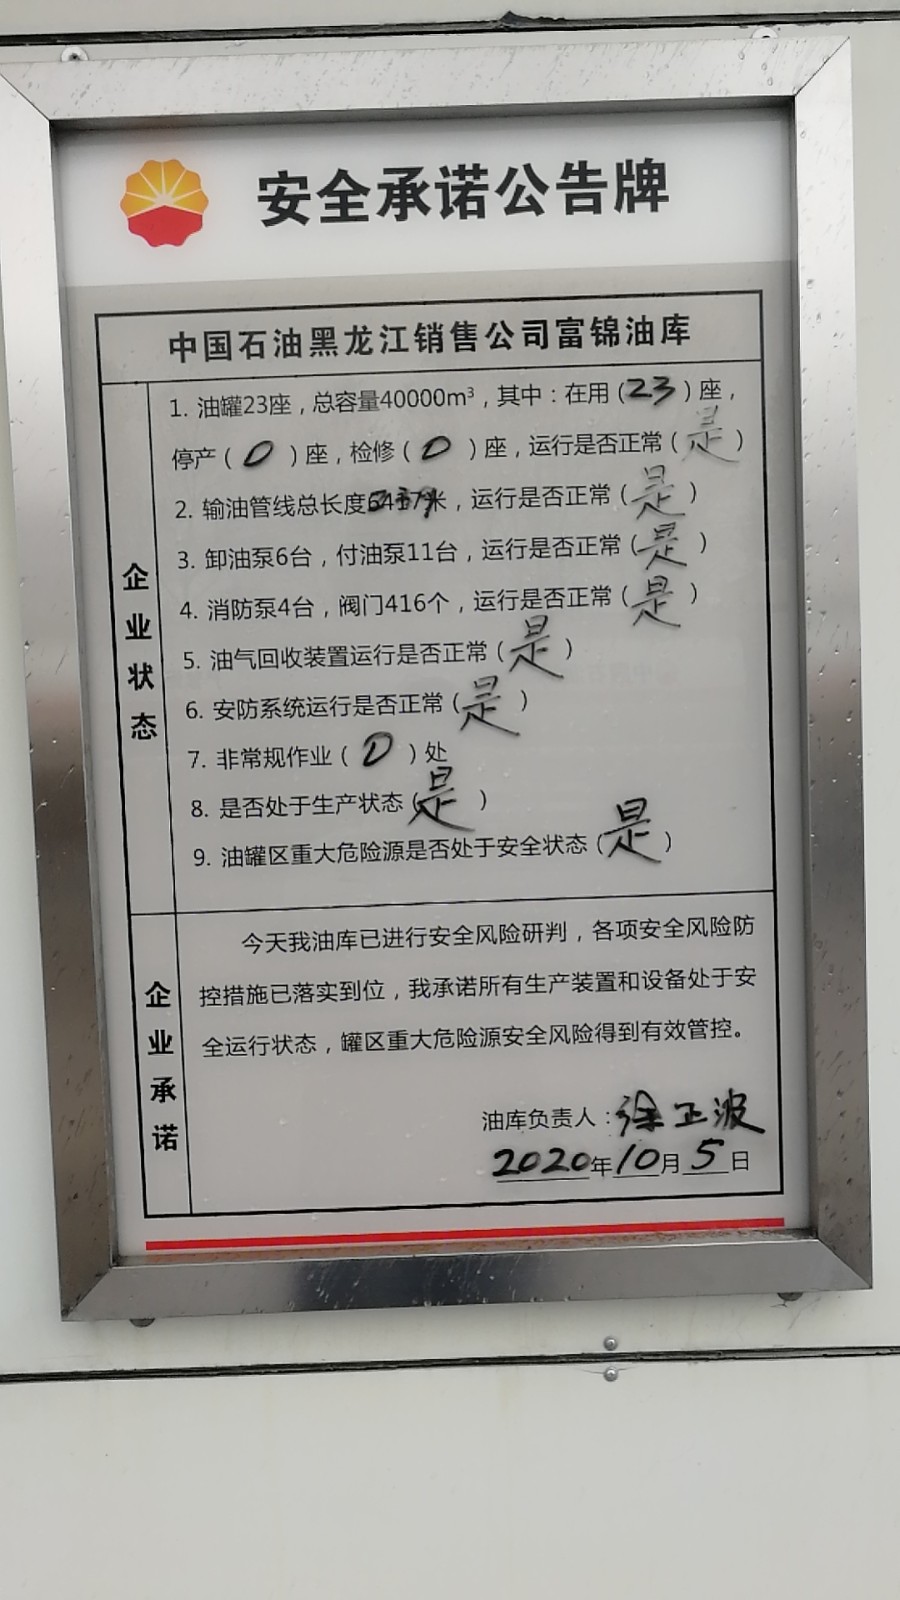 安全承诺公告牌
中国石油黑龙江销售公司富锦油库
企业状态
1. 油罐23座，总容量40000m³，其中：在用（23）座，
停产（0）座，检修（0）座，运行是否正常（是）
2. 输油管线总长度米，运行是否正常（是）
3. 卸油泵6台，付油泵11台，运行是否正常（是）
4. 消防泵4台，阀门416个，运行是否正常（是）
5. 油气回收装置运行是否正常（是）
6. 安防系统运行是否正常（是）
7. 非常规作业（0）处
8. 是否处于生产状态（是）
9. 油罐区重大危险源是否处于安全状态（是）
企业承诺
今天我油库已进行安全风险研判，各项安全风险防
控措施已落实到位，我承诺所有生产装置和设备处于安
全运行状态，罐区重大危险源安全风险得到有效管控。
油库负责人：徐正波
2020年10月5日